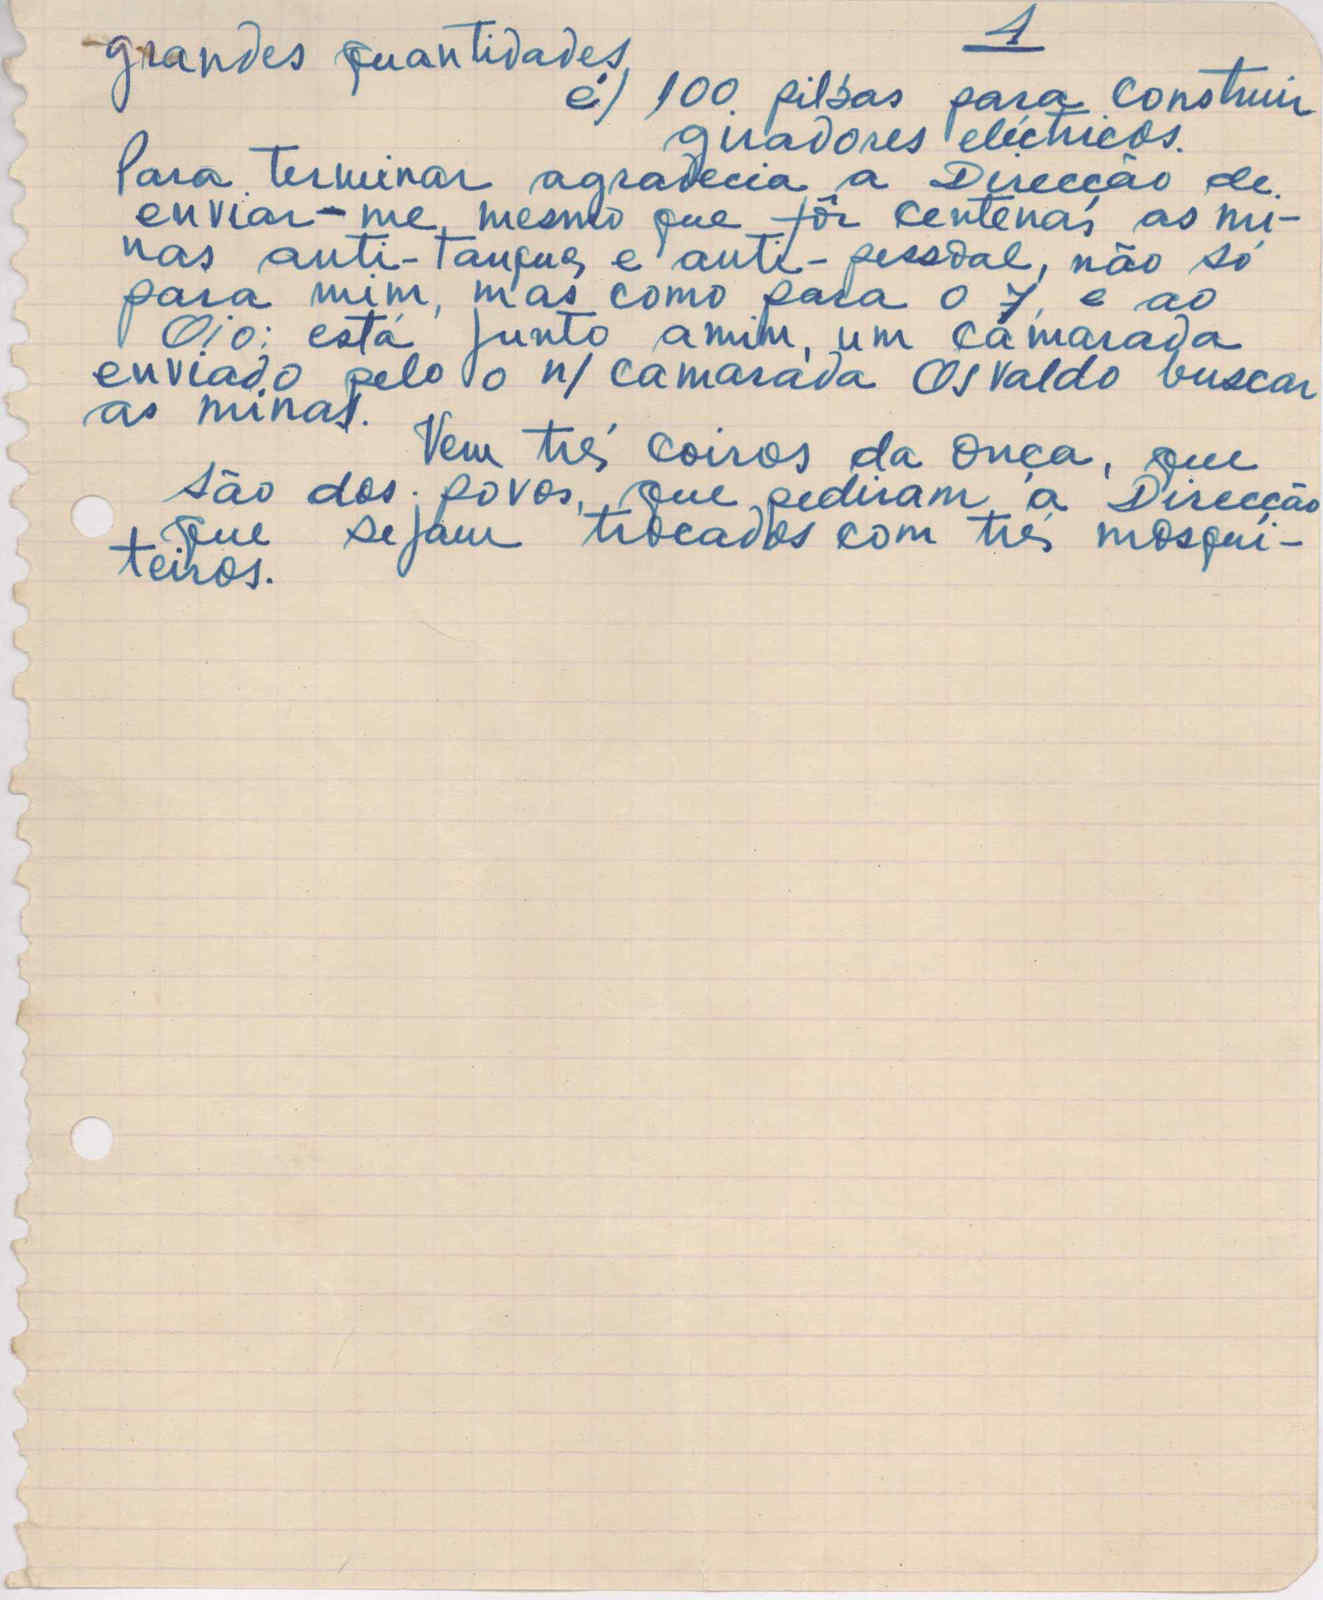 1
grandes quantidades
é) 100 pilhas para construir
giradores eléctricos.
Para terminar agradecia a Direcção de
enviar-me, mesmo que fôr centenas, as mi-
nas anti-tanques e anti-pessoal, não só
para mim, mas como para o 7, e ao
Oio: está junto amim, um camarada
enviado pelo o n/ camarada Osvaldo buscar
as minas.
Vem três coiros da onça, que
são dos povos, que pediram a Direcção
que sejam trocados com três mosqui-
teiros.